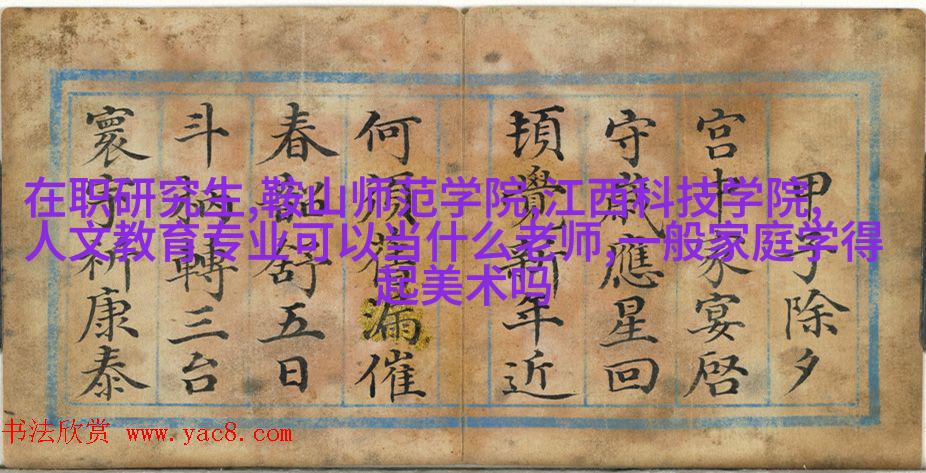 甲子除夕
宮中家宴啓
守歲應星回
頓覺新年近
何須舊漏催
春韶舒五日
斗轉三台
寰宇祈康泰
在职研究生,鞍山师范学院,江西科技学院,
人文教育专业可以当什么老师,一般家庭学得
起美术吗
书法欣赏 www.yac8.com